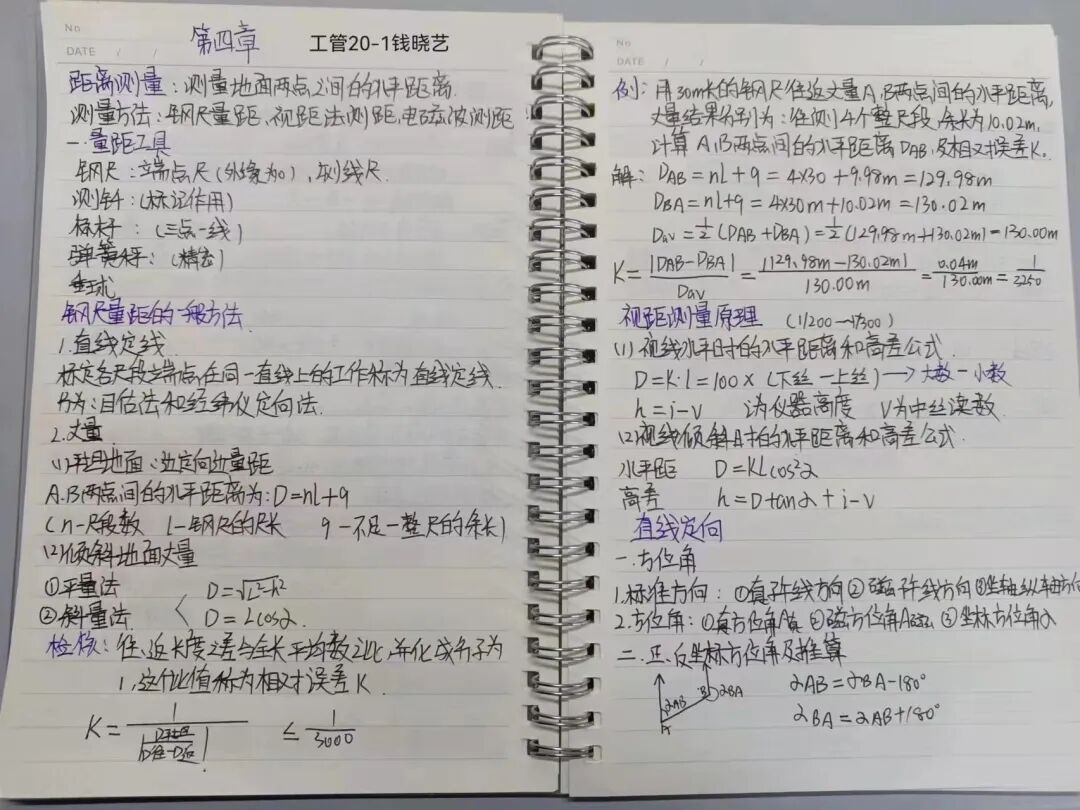 No
DATE / /
第四章
工管20-1钱晓艺
距离测量：测量地面两点之间的水平距离.
测量方法：钢尺量距、视距法测距、电磁波测距
一.量距工具
钢尺：端点尺(外缘为0)、刻线尺.
测钎：(标记作用)
标杆：(三点一线)
弹簧秤：(精密)
垂球
钢尺量距的一般方法.
1.直线定线
标定各尺段端点在同一直线上的工作称为直线定线.
分为：目估法和经纬仪定向法.
2.丈量
(1)平坦地面：边定向边量距
A.B两点间的水平距离为：D=nl+q
(n-尺段数 l-钢尺的尺长 q-不足一整尺的余长)
(2)倾斜地面丈量
①平量法 D=√L²-h²
②斜量法 D=Lcosα
检核：往、返长度之差与全长平均数之比,并化成分子为
1,这个比值称为相对误差K.
K=1/(D平均/|D往-D返|) ≤ 1/3000
No
DATE / /
例：用30m长的钢尺往返丈量A.B两点间的水平距离,
丈量结果分别为：往测4个整尺段,余长为10.02m.
计算A.B两点间的水平距离DAB,及相对误差K.
解：DAB=nl+q=4×30+9.98m=129.98m
DBA=nl+q=4×30m+10.02m=130.02m
Dav=1/2(DAB+DBA)=1/2(129.98m+130.02m)=130.00m
K=|DAB-DBA|/Dav=|129.98m-130.02m|/130.00m=0.04m/130.00m=1/3250
视距测量原理 (1/200~1/300)
(1)视线水平时的水平距离和高差公式.
D=K·l=100×(下丝-上丝)→大数-小数
h=i-v i为仪器高度 v为中丝读数.
(2)视线倾斜时的水平距离和高差公式.
水平距 D=KLcos²α
高差 h=Dtanα+i-v
直线定向
一.方位角
1.标准方向：①真子午线方向②磁子午线方向③坐轴纵轴方向
2.方位角：①真方位角A真 ②磁方位角A磁 ③坐标方位角α
二.正、反坐标方位角及推算
αAB B αBA A
αAB=αBA-180°
αBA=αAB+180°